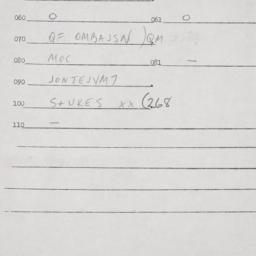 060 O 061 O
070 QF OMBAJSN / QM
080 MOC 081 —
090 JONTEJVM7
100 STUKES XX (268
110 —